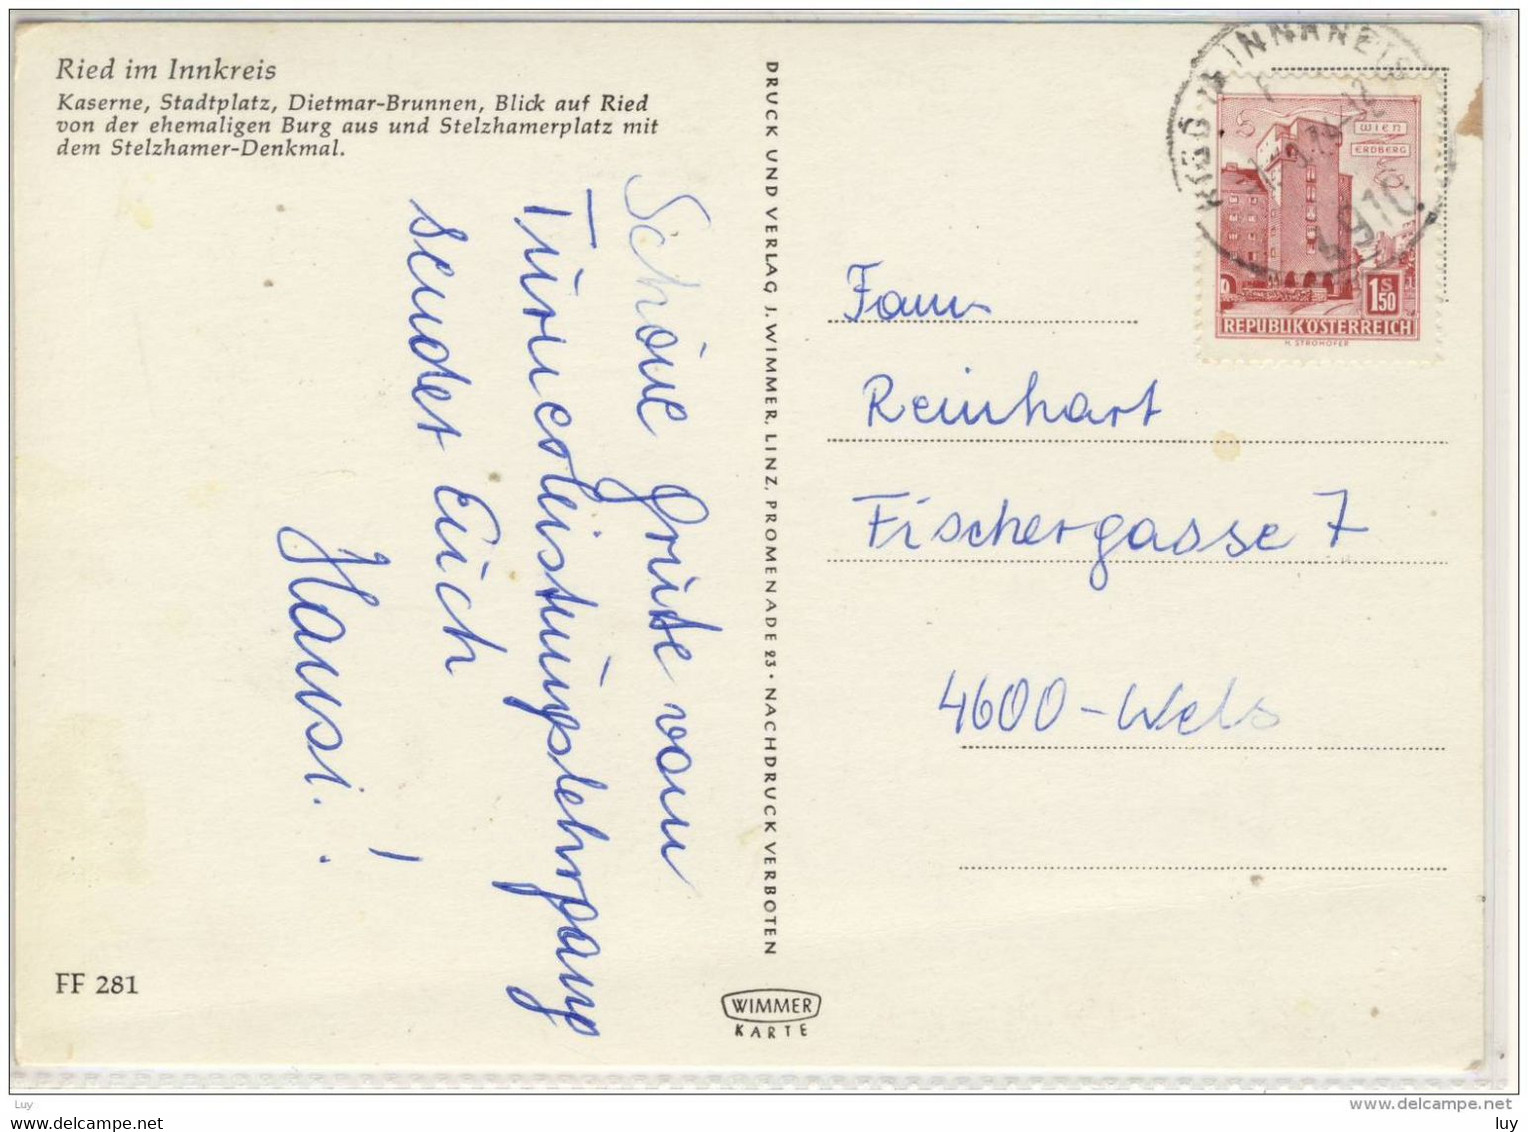 Ried im Innkreis
Kaserne, Stadtplatz, Dietmar-Brunnen, Blick auf Ried
von der ehemaligen Burg aus und Stelzhamerplatz mit
dem Stelzhamer-Denkmal.
Schöne Grüße vom
Turnicoleistungslehrgang
sendet Euch
Hansi.!
FF 281
DRUCK UND VERLAG J. WIMMER, LINZ, PROMENADE 23 • NACHDRUCK VERBOTEN
WIMMER
KARTE
INNKREIS
4910
WIEN
ERDBERG
1 S 50
REPUBLIK ÖSTERREICH
H. STROHOFER
Fam
Reinhart
Fischergasse 7
4600-Wels
Luy
www.delcampe.net
www.delcampe.net
luy